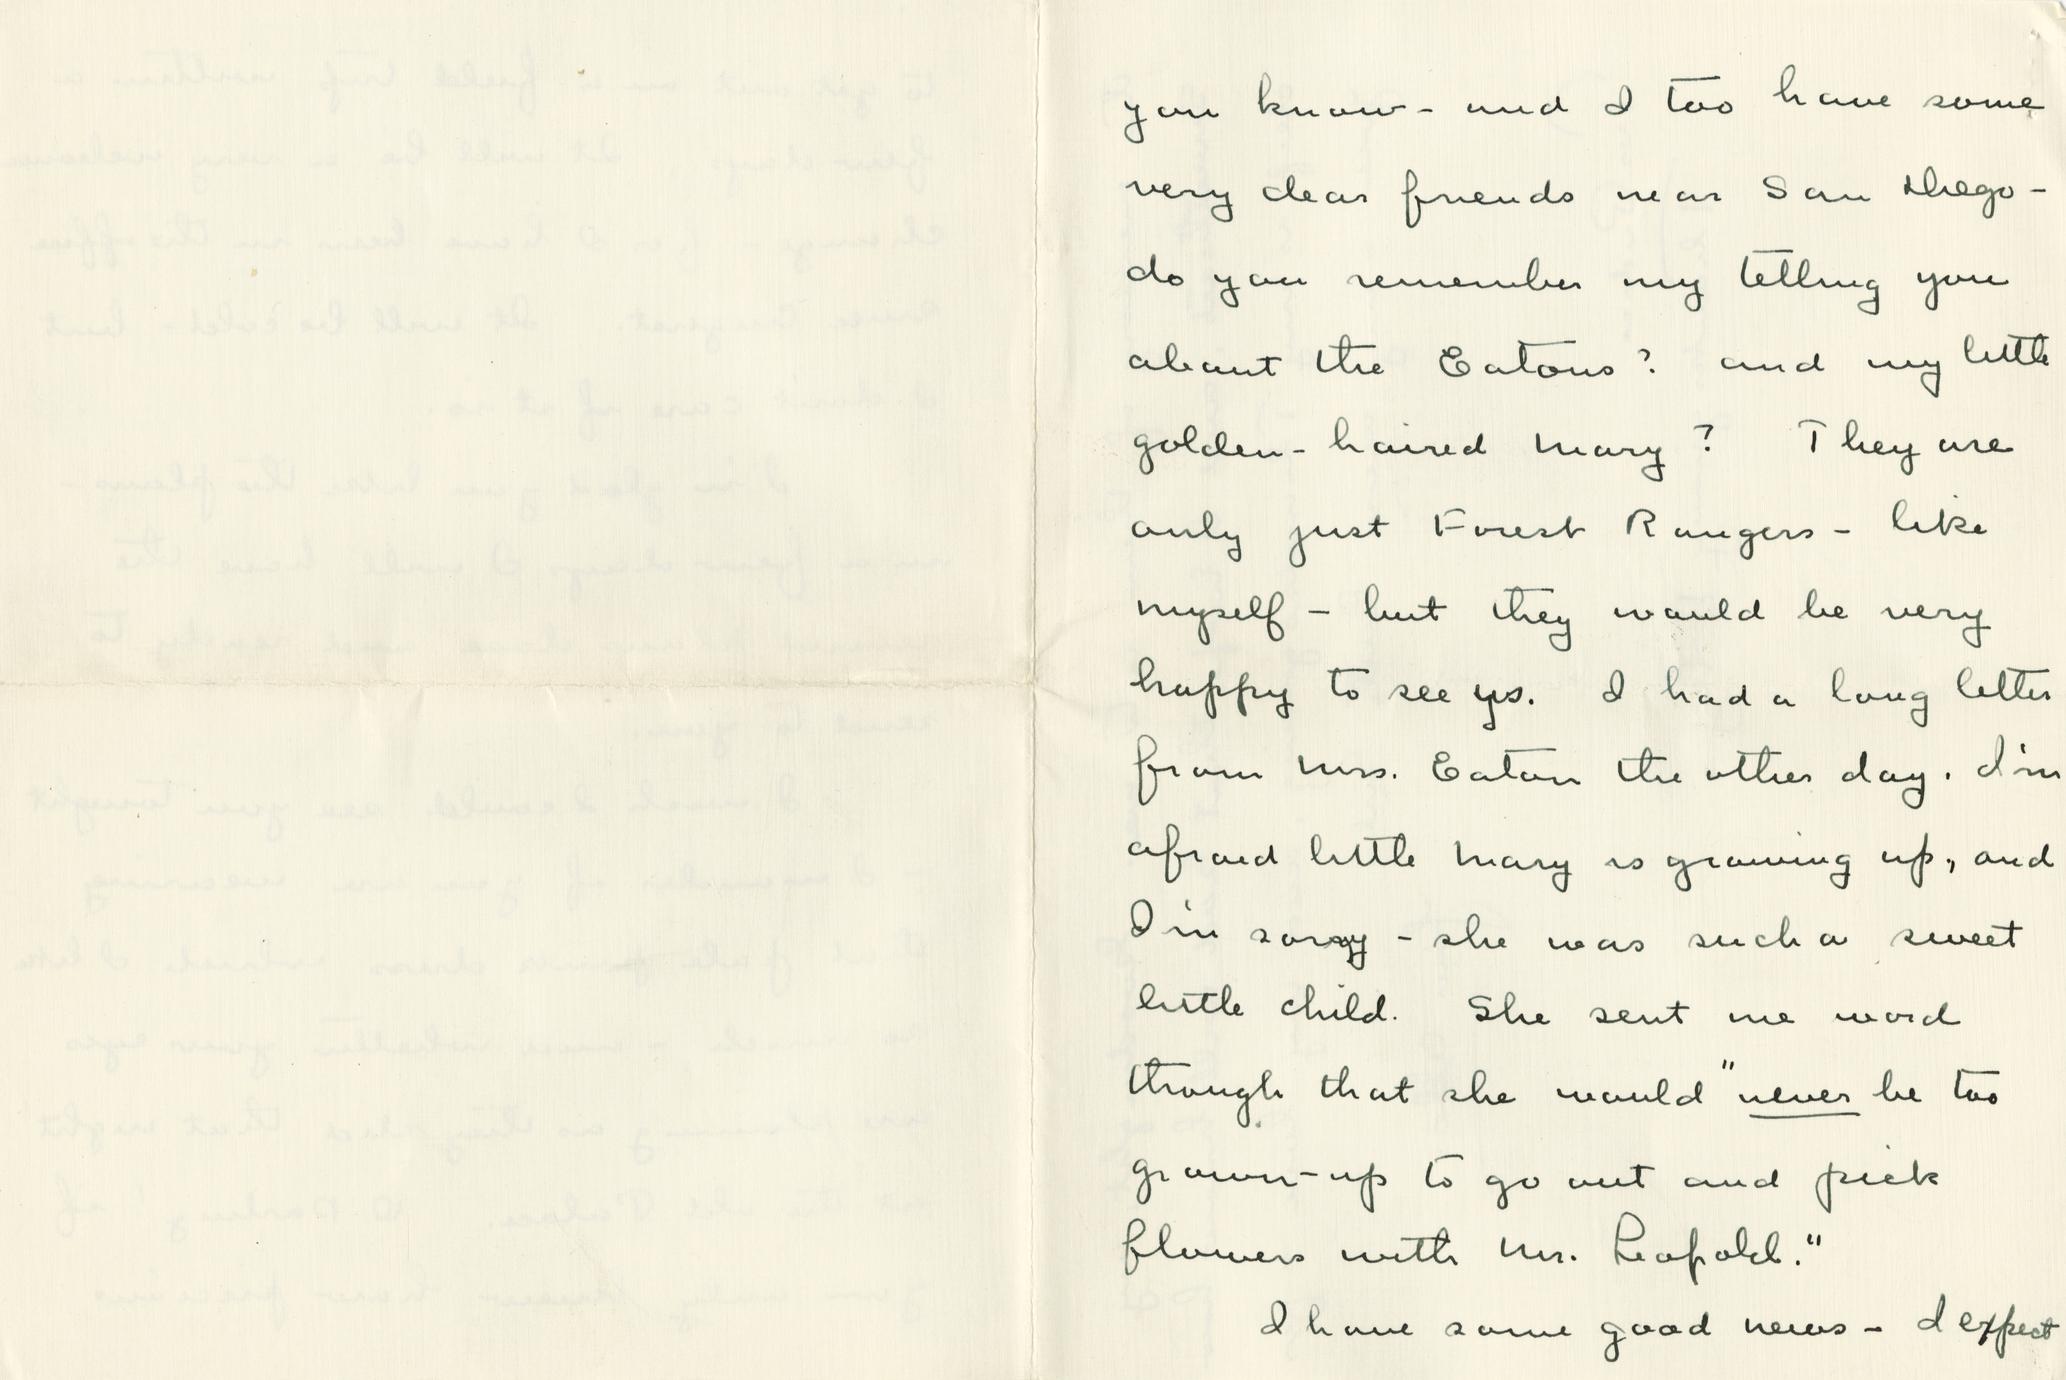 you know - and I too have some
very dear friends near San Diego -
do you remember my telling you
about the Eatons? and my little
golden-haired Mary? They are
only just Forest Rangers - like
myself - but they would be very
happy to see us. I had a long letter
from Mrs. Eaton the other day. I'm
afraid little Mary is growing up, and
I'm sorry - she was such a sweet
little child. She sent me word
though that she would "never be too
grown-up to go out and pick
flowers with Mr. Leopold."
I have some good news - I expect